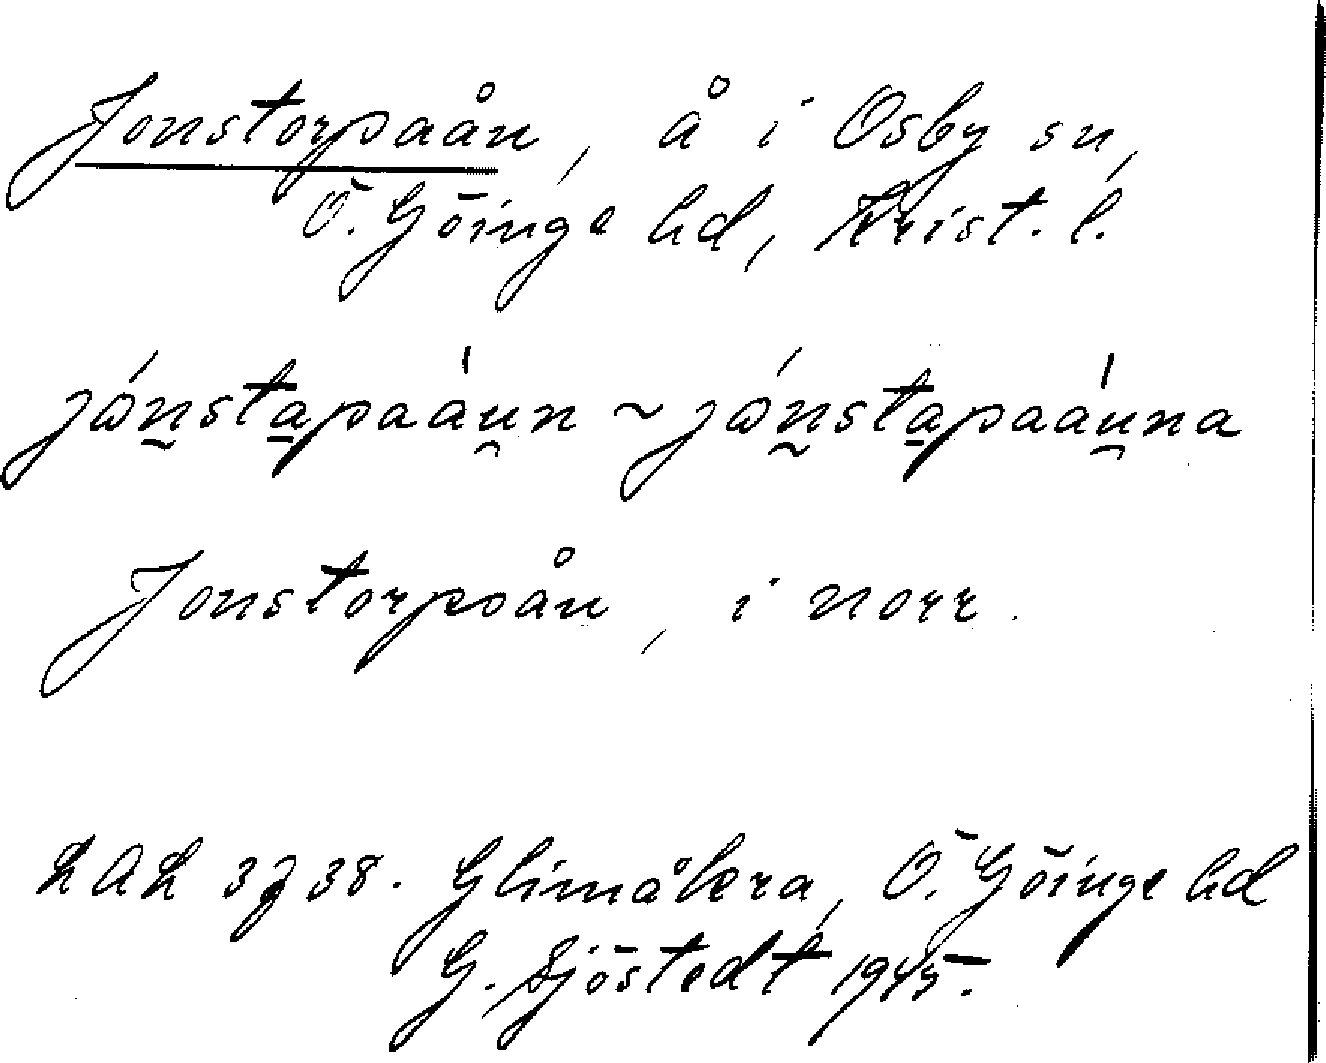 Jonstorpaån, å i Osby sn,
Ö. Göinge hd, Krist. l.
jó̰nstapaáu̯n ~ jó̰nstapaáu̯na
Jonstorpsån, i norr.
LAL 3738. Glimåkra, Ö. Göinge hd
G. Sjöstedt 1945.